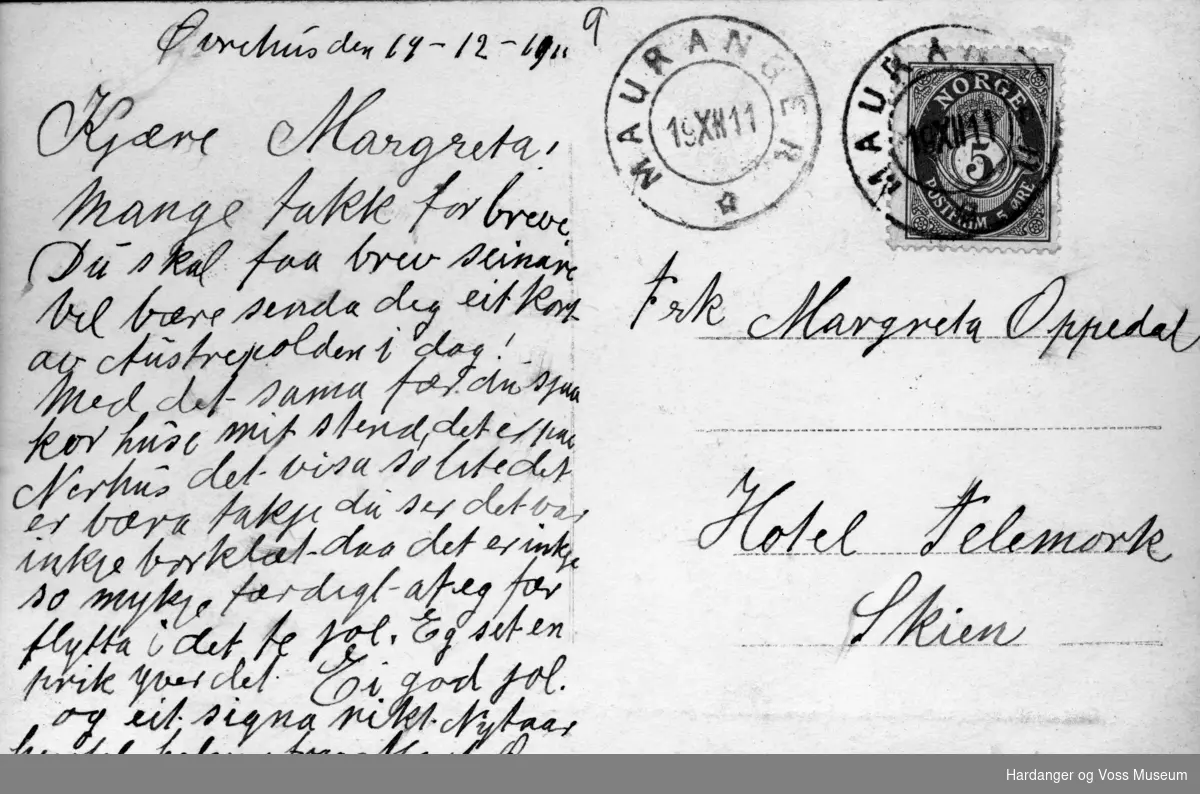 Øvrehus den 19-12-1911
9
Kjære Margreta!
Mange takk for breve
Du skal faa brev seinare
vil bære senda deg eit kort
av Austrepolden i dag!
Med det sama fær du sjaa
kor huse mit stend, det er paa
Nerhus det visa so lite det
er bæra takje du ser det var
inkje borklæt daa det er inkje
so mykje færdigt at eg fær
flytta i det te jol. Eg set en
prik yver det. Ei god jol.
og eit signa rikt Nytaar
MAURANGER
19XII11
MAURANGER
19XII11
NORGE
5
POSTFRIM. 5 ØRE
Frk Margreta Oppedal
Hotel Telemork
Skien
Hardanger og Voss Museum